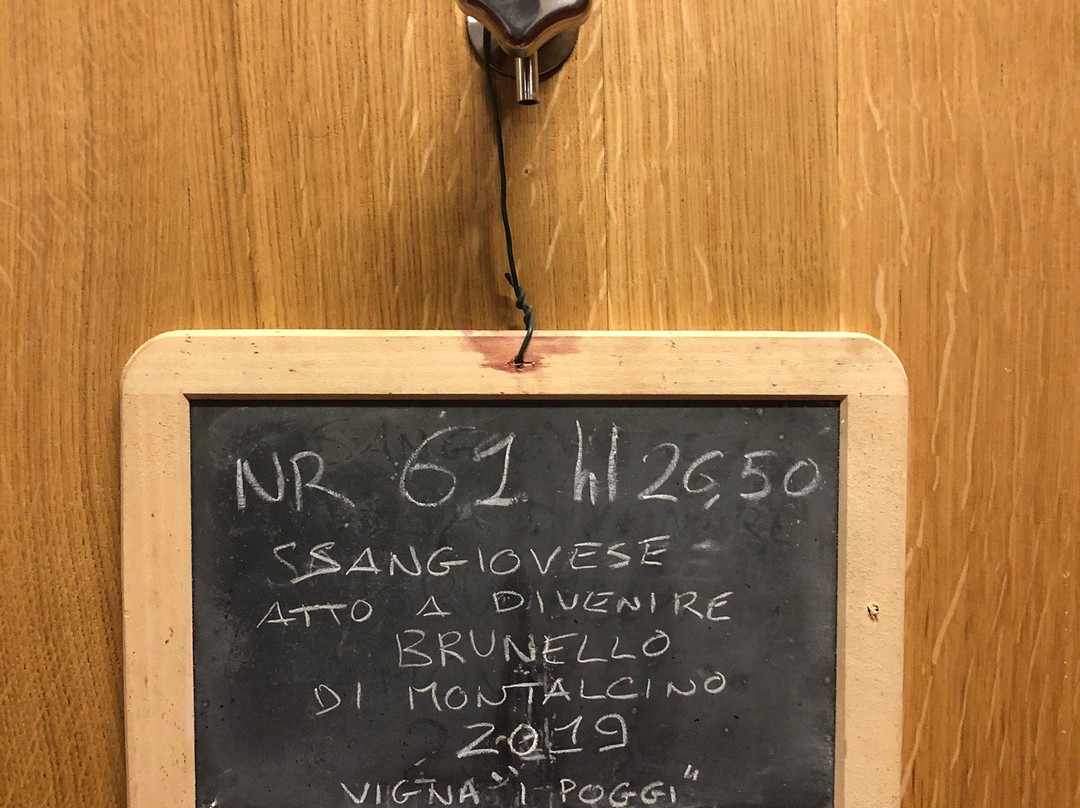 NR 61 hl 26,50
SSANGIOVESE
ATTO A DIVENIRE
BRUNELLO
DI MONTALCINO
2019
VIGNA "I POGGI"